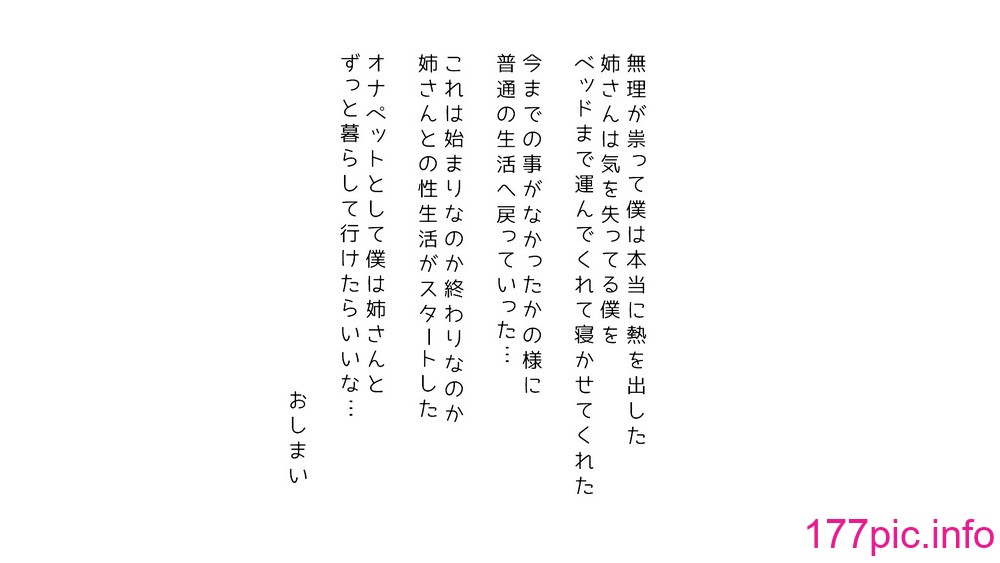 無理が祟って僕は本当に熱を出した
姉さんは気を失ってる僕を
ベッドまで運んでくれて寝かせてくれた
今までの事がなかったかの様に
普通の生活へ戻っていった…
これは始まりなのか終わりなのか
姉さんとの性生活がスタートした
オナペットとして僕は姉さんと
ずっと暮らして行けたらいいな…
おしまい
177pic.info